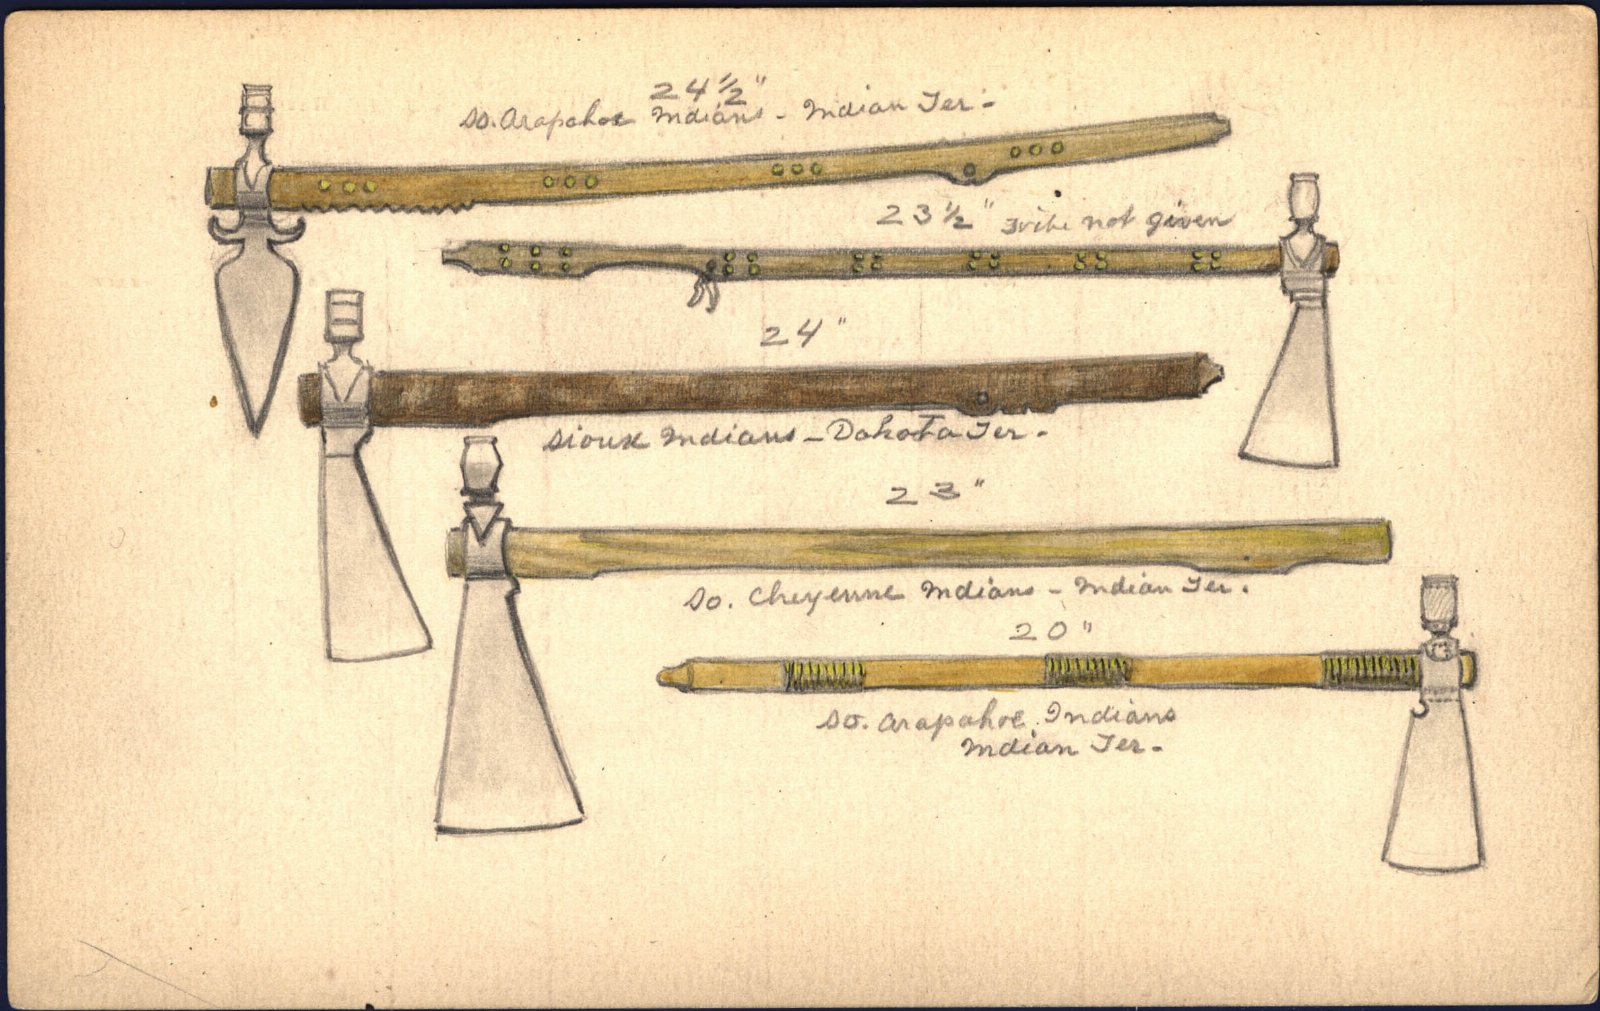 24½"
So. Arapahoe Indians - Indian Ter -
23½" Tribe not given
24"
Sioux Indians - Dakota Ter -
23"
So. Cheyenne Indians - Indian Ter.
20"
So. Arapahoe Indians
Indian Ter -